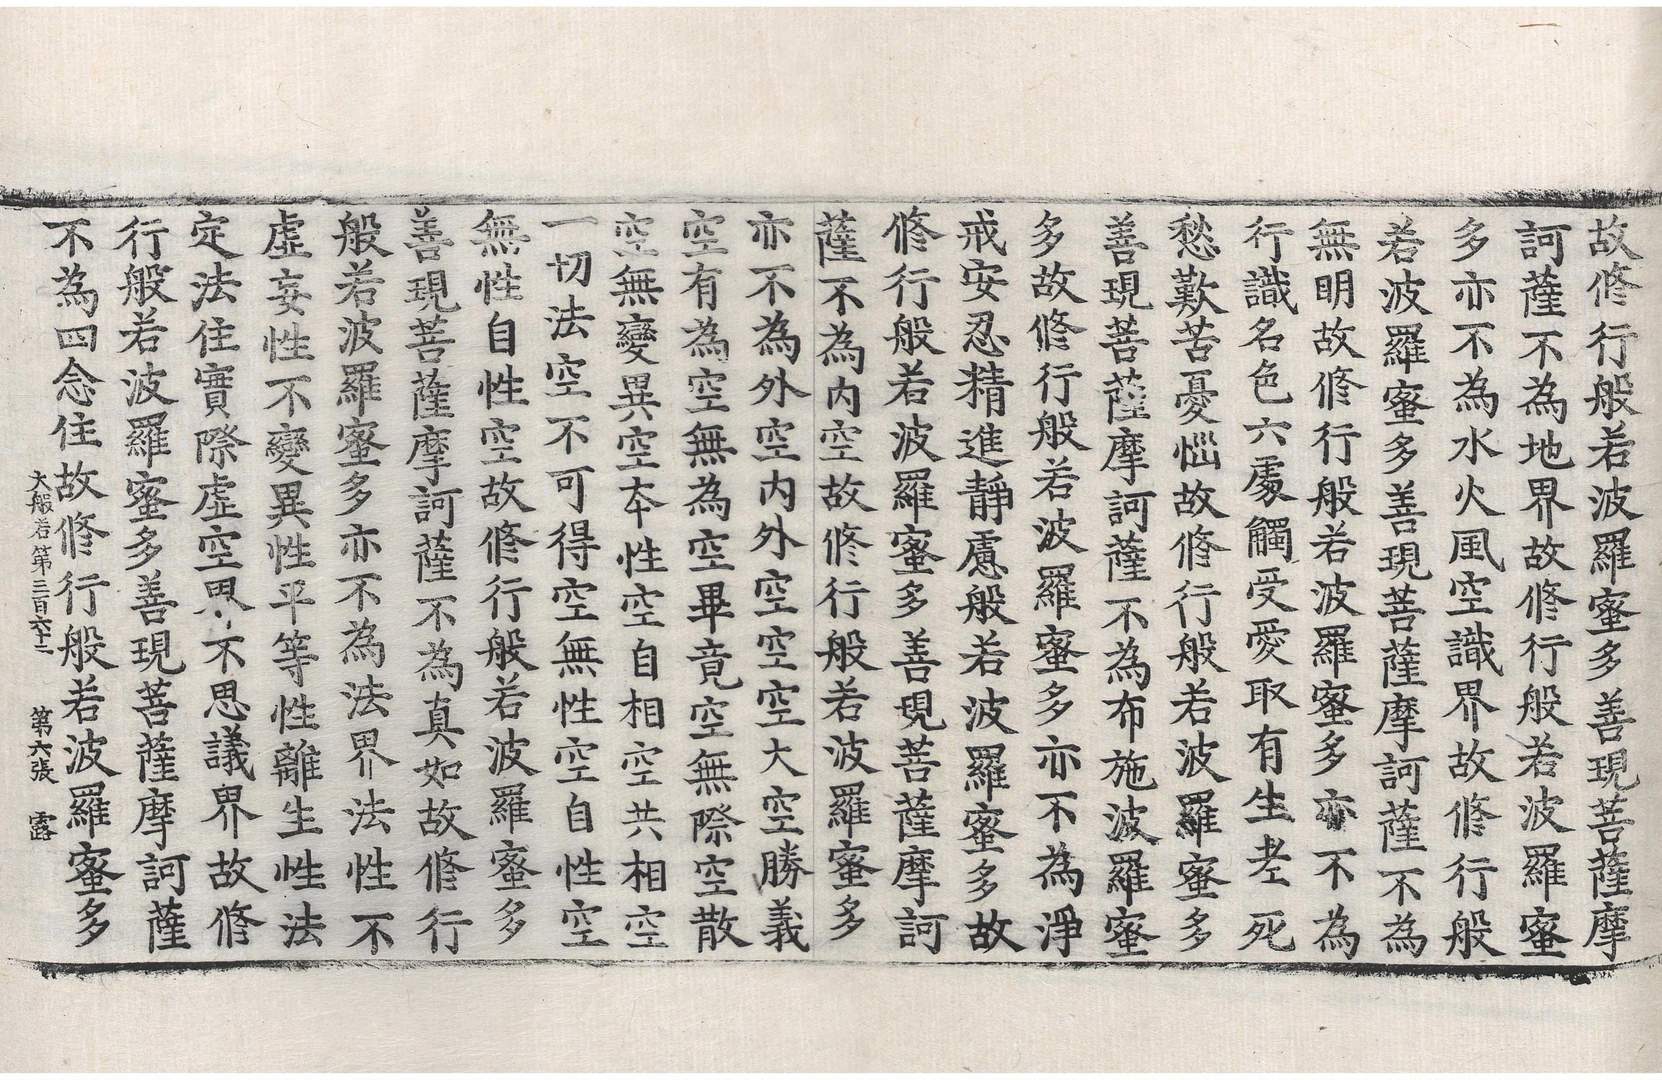 故修行般若波羅蜜多善現菩薩摩
訶薩不為地界故修行般若波羅蜜
多亦不為水火風空識界故修行般
若波羅蜜多善現菩薩摩訶薩不為
無明故修行般若波羅蜜多亦不為
行識名色六處觸受愛取有生老死
愁歎苦憂惱故修行般若波羅蜜多
善現菩薩摩訶薩不為布施波羅蜜
多故修行般若波羅蜜多亦不為淨
戒安忍精進靜慮般若波羅蜜多故
修行般若波羅蜜多善現菩薩摩訶
薩不為內空故修行般若波羅蜜多
亦不為外空內外空空空大空勝義
空有為空無為空畢竟空無際空散
空無變異空本性空自相空共相空
一切法空不可得空無性空自性空
無性自性空故修行般若波羅蜜多
善現菩薩摩訶薩不為真如故修行
般若波羅蜜多亦不為法界法性不
虛妄性不變異性平等性離生性法
定法住實際虛空界不思議界故修
行般若波羅蜜多善現菩薩摩訶薩
不為四念住故修行般若波羅蜜多
大般若第三百六十三 第六張 露